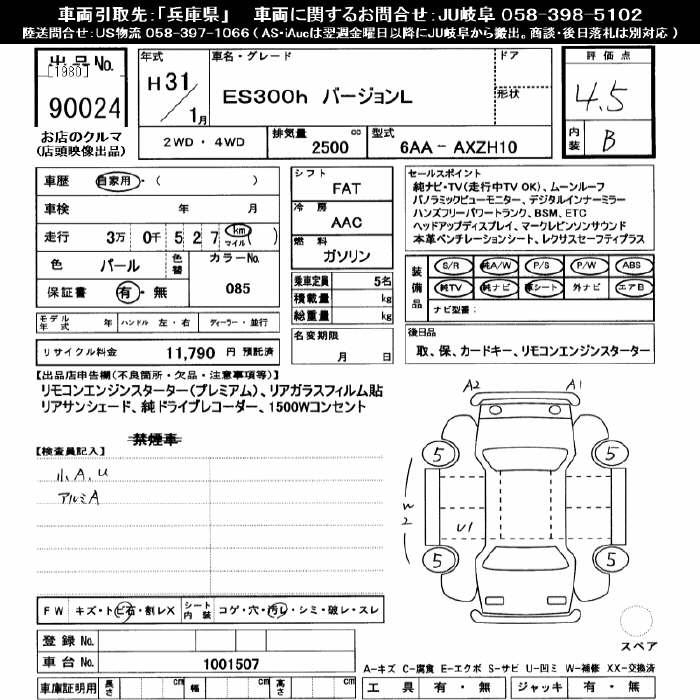 車両引取先:「兵庫県」 車両に関するお問合せ:JU岐阜 058-398-5102
陸送問合せ:US物流 058-397-1066 ( AS・iAucは翌週金曜日以降にJU岐阜から搬出。商談・後日落札は別対応 )
出品No.
[1980]
90024
お店のクルマ
(店頭映像出品)
年式
H31/1月
車名・グレード
ES300h バージョンL
ドア
形状
2WD・4WD
排気量 2500 cc
型式 6AA - AXZH10
評価点
4.5
内装 B
車歴 自家用・( )
車検 年 月
走行 3万 0千 5 2 7 km マイル )
色 パール 色替 カラーNo.
保証書 有・無 085
モデル年式 年 ハンドル 左・右 ディーラー・並行
リサイクル料金 11,790 円 預託済
シフト
FAT
冷房
AAC
燃料
ガソリン
乗車定員 5名
積載量 kg
総重量 kg
名変期限
月 日
セールスポイント
純ナビ・TV(走行中TV OK)、ムーンルーフ
パノラミックビューモニター、デジタルインナーミラー
ハンズフリーパワートランク、BSM、ETC
ヘッドアップディスプレイ、マークレビンソンサウンド
本革ベンチレーションシート、レクサスセーフティプラス
装備品
S/R 純A/W P/S P/W ABS
純TV 純ナビ 革シート 外ナビ エアB
ナビ型番:
後日品
取、保、カードキー、リモコンエンジンスターター
【出品店申告欄(不良箇所・欠品・注意事項等)】
リモコンエンジンスターター(プレミアム)、リアガラスフィルム貼
リアサンシェード、純ドライブレコーダー、1500Wコンセント
禁煙車
【検査員記入】
小A、U
アルミA
A2 A1
5 5
W2
U1
5 5
スペア
FW キズ・トビ石・割レX シート内装 コゲ・穴・汚レ・シミ・破レ・スレ
登録No.
車台No. 1001507
車庫証明用 長さ cm 幅 cm 高さ cm
A-キズ C-腐食 E-エクボ S-サビ U-凹ミ W-補修 XX-交換済
工具 有・無 ジャッキ 有・無